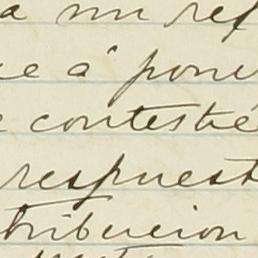 a mi ref
ce á poner
e contesté
respuest
tribucion